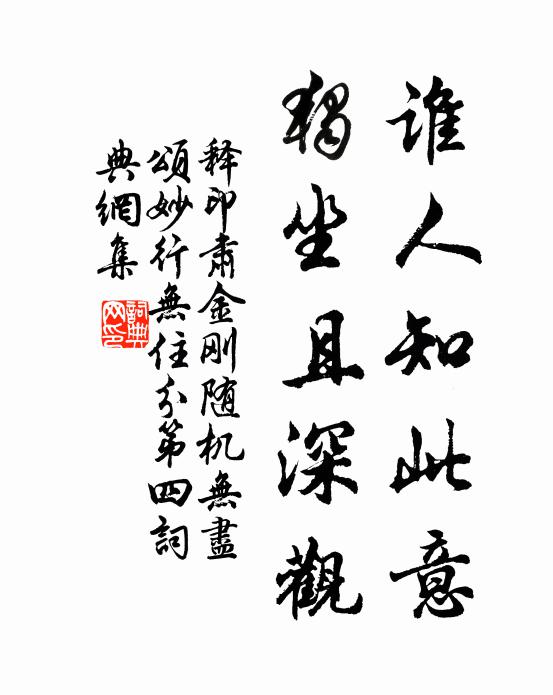 誰人知此意
獨坐且深觀
释印肃金刚随机無盡
頌妙行無住分第四詞
典網集
詞典網印